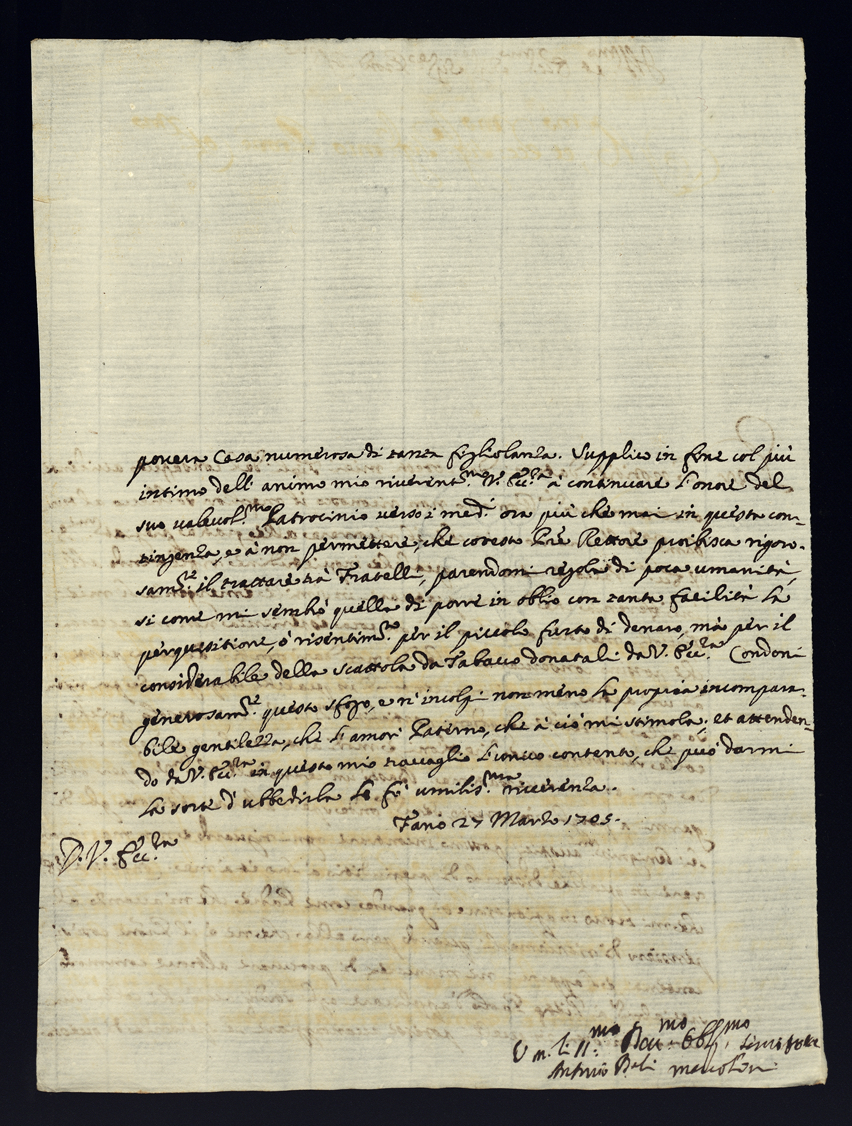 povera Casa numerosa di tanta figliolanza. Supplico in fine col più
intimo dell'animo mio riverent.mo V. Ecc.za à continuare l'onore del
suo valevol.mo Patrocinio verso i med.i ora più che mai in questa con-
tingenza, e à non permettere, che cotesto Pre Rettore proibisca rigoro-
sam.te il trattare trà Fratelli, parendomi regola di poca umanità,
si come mi sembrò quella di porre in oblio con tanta facilità la
perquisitione, ò risentim.to per il piccolo furto di denaro, mà per il
considerabile della scattola da Tabacco donatali da V. Ecc.za Condoni
generosam.te questo sfogo, e n'incolpi non meno la propria incompara-
bile gentilezza, che l'amor Paterno, che à ciò mi stimola; et attenden-
do da V. Ecc.za in questo mio travaglio l'unico contento, che può darmi
la sorte d'ubbedirla le fò umilis.ma riverenza.
Fano 27 Marzo 1705.
D. V. Ecc.za
Um.li.mo Dev.mo Obb.mo Servitore
Antonio